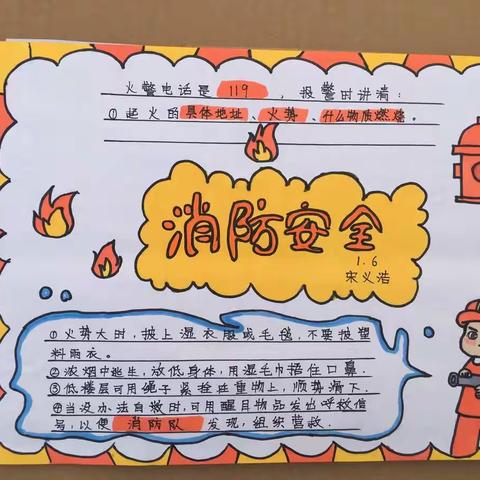 火警电话是 119 ，报警时讲清：
①起火的具体地址、火势、什么物质燃烧。
消防安全
1.6
宋义浩
①火势大时，披上湿衣服或毛毯，不要披塑
料雨衣。
②浓烟中逃生，放低身体，用湿毛巾捂住口鼻.
③低楼层可用绳子紧拴在重物上，顺势滑下.
④当没办法自救时，可用醒目物品发出呼救信
号，以便 消防队 发现，组织营救.